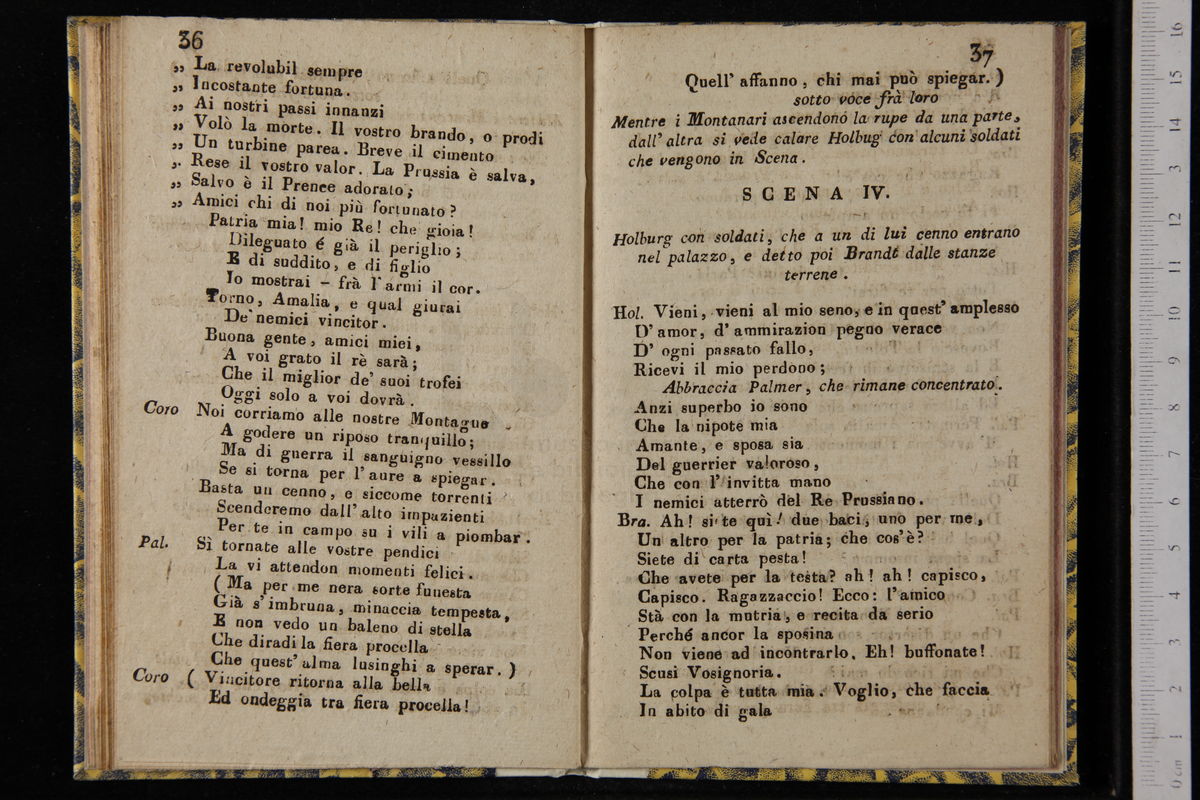 36
„ La revolubil sempre
„ Incostante fortuna.
„ Ai nostri passi innanzi
„ Volò la morte. Il vostro brando, o prodi
„ Un turbine parea. Breve il cimento
„ Rese il vostro valor. La Prussia è salva,
„ Salvo è il Prence adorato;
„ Amici chi di noi più fortunato?
Patria mia! mio Re! che gioia!
Dileguato é già il periglio;
E di suddito, e di figlio
Io mostrai - frà l'armi il cor.
Torno, Amalia, e qual giurai
De' nemici vincitor.
Buona gente, amici miei,
A voi grato il rè sarà;
Che il miglior de' suoi trofei
Oggi solo a voi dovrà.
Coro Noi corriamo alle nostre Montague
A godere un riposo tranquillo;
Ma di guerra il sanguigno vessillo
Se si torna per l'aure a spiegar.
Basta un cenno, e siccome torrenti
Scenderemo dall'alto impazienti
Per te in campo su i vili a piombar.
Pal. Sì tornate alle vostre pendici
La vi attendon momenti felici.
( Ma per me nera sorte funesta
Già s'imbruna, minaccia tempesta,
E non vedo un baleno di stella
Che diradi la fiera procella
Che quest' alma lusinghi a sperar. )
Coro ( Vincitore ritorna alla bella
Ed ondeggia tra fiera procella!
37
Quell' affanno, chi mai può spiegar. )
sotto voce frà loro
Mentre i Montanari ascendono la rupe da una parte,
dall' altra si vede calare Holbug con alcuni soldati
che vengono in Scena.
SCENA IV.
Holburg con soldati, che a un di lui cenno entrano
nel palazzo, e detto poi Brandt dalle stanze
terrene.
Hol. Vieni, vieni al mio seno, e in quest' amplesso
D' amor, d' ammirazion pegno verace
D' ogni passato fallo,
Ricevi il mio perdono;
Abbraccia Palmer, che rimane concentrato.
Anzi superbo io sono
Che la nipote mia
Amante, e sposa sia
Del guerrier valoroso,
Che con l' invitta mano
I nemici atterrò del Re Prussiano.
Bra. Ah! si te quì! due baci, uno per me,
Un altro per la patria; che cos'è?
Siete di carta pesta!
Che avete per la testa? ah! ah! capisco,
Capisco. Ragazzaccio! Ecco: l'amico
Stà con la mutria, e recita da serio
Perché ancor la sposina
Non viene ad incontrarlo. Eh! buffonate!
Scusi Vosignoria.
La colpa è tutta mia. Voglio, che faccia
In abito di gala
0 cm 1 2 3 4 5 6 7 8 9 10 11 12 13 14 15 16